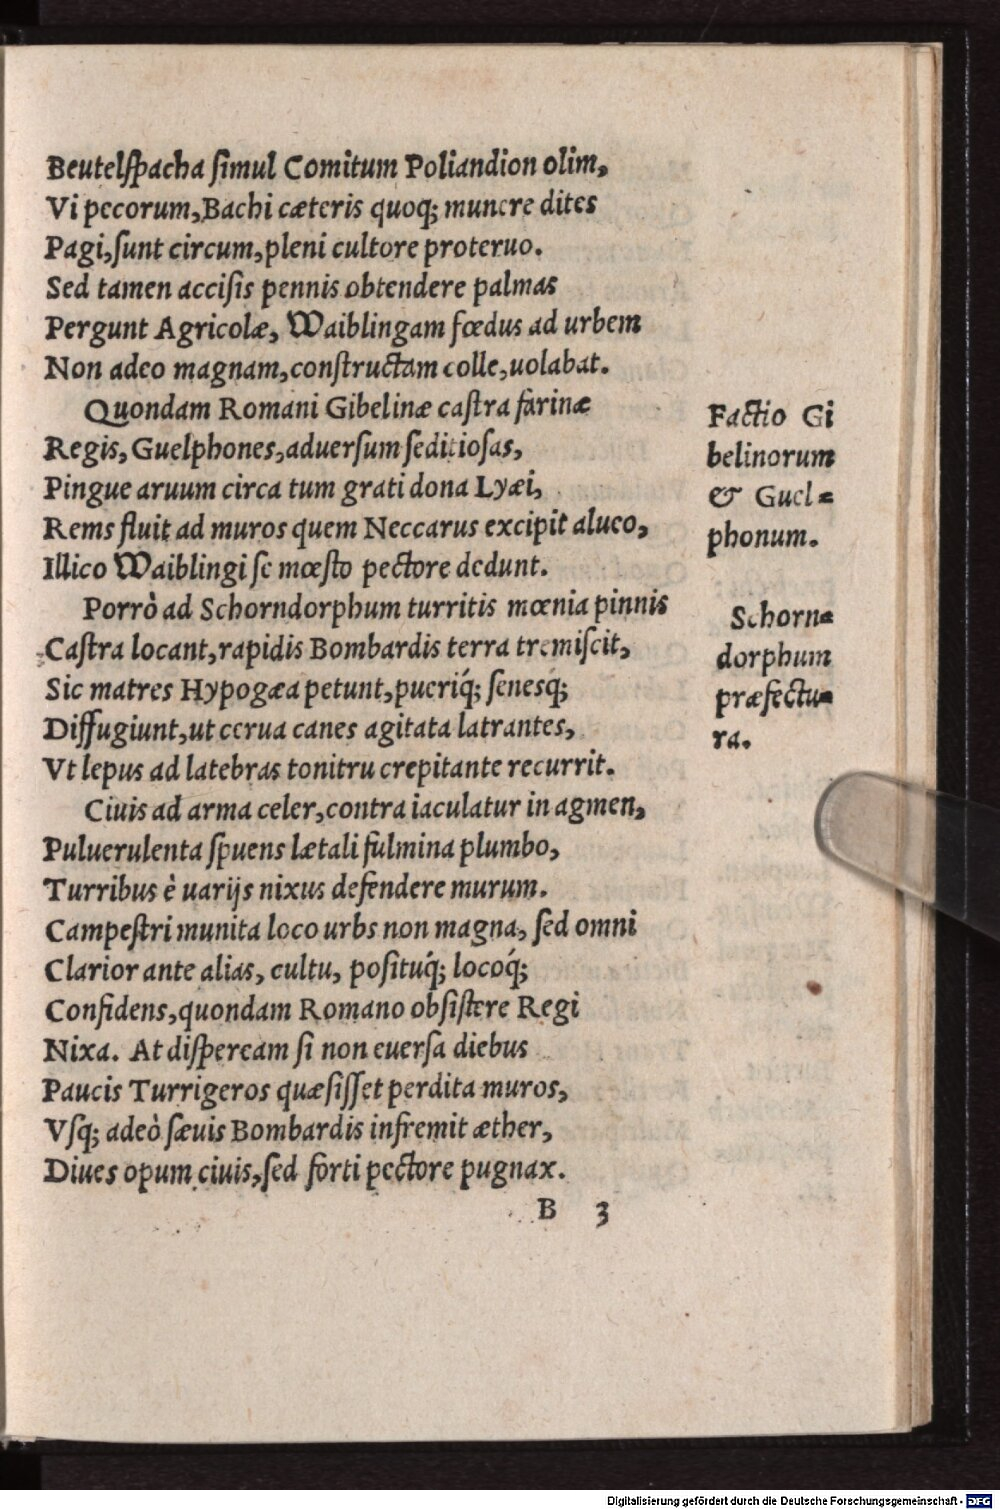 Beutelſpacha ſimul Comitum Poliandion olim,
Vi pecorum, Bachi cæteris quoq; munere dites
Pagi, ſunt circum, pleni cultore proteruo.
Sed tamen acciſis pennis obtendere palmas
Pergunt Agricolæ, Waiblingam fœdus ad urbem
Non adeo magnam, conſtructam colle, uolabat.
Quondam Romani Gibelinæ caſtra farinæ
Regis, Guelphones, aduerſum ſeditioſas,
Pingue aruum circa tum grati dona Lyæi,
Rems fluit ad muros quem Neccarus excipit alueo,
Illico Waiblingi ſe mœſto pectore dedunt.
Porrò ad Schorndorphum turritis mœnia pinnis
Caſtra locant, rapidis Bombardis terra tremiſcit,
Sic matres Hypogæa petunt, pueriq́; ſenesq́;
Diffugiunt, ut cerua canes agitata latrantes,
Vt lepus ad latebras tonitru crepitante recurrit.
Ciuis ad arma celer, contra iaculatur in agmen,
Puluerulenta ſpuens lætali fulmina plumbo,
Turribus è uarijs nixus defendere murum.
Campeſtri munita loco urbs non magna, ſed omni
Clarior ante alias, cultu, poſituq́; locoq́;
Confidens, quondam Romano obſiſtere Regi
Nixa. At diſpeream ſi non euerſa diebus
Paucis Turrigeros quæſiſſet perdita muros,
Vſq; adeò ſæuis Bombardis infremit æther,
Diues opum ciuis, ſed forti pectore pugnax.
B 3
Factio Gi
belinorum
& Guel=
phonum.
Schorn=
dorphum
præfectu=
ra.
Digitalisierung gefördert durch die Deutsche Forschungsgemeinschaft - DFG